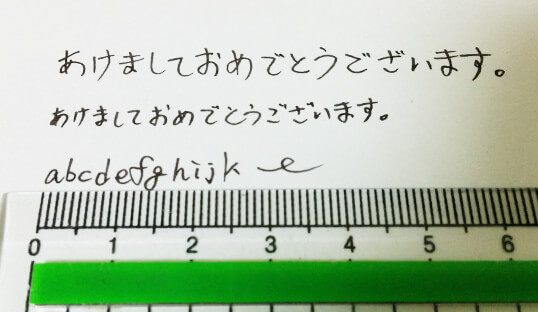 あけましておめでとうございます。
あけましておめでとうございます。
abcdefghijk e
0 1 2 3 4 5 6